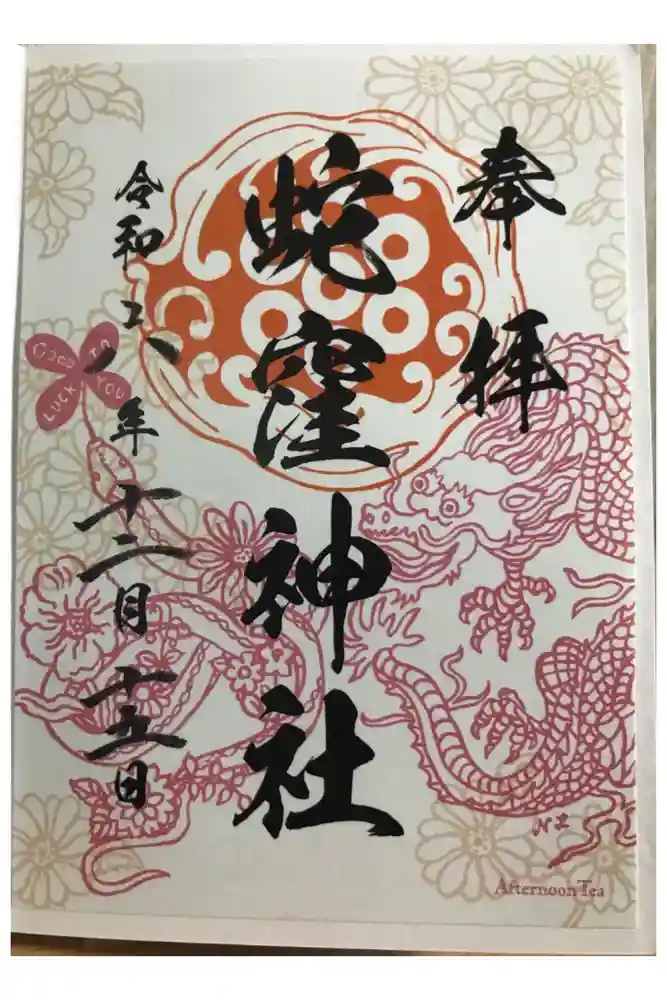 奉拝
蛇窪神社
令和六年十二月十五日
GOOD
LUCK
TO
YOU
N I
Afternoon Tea